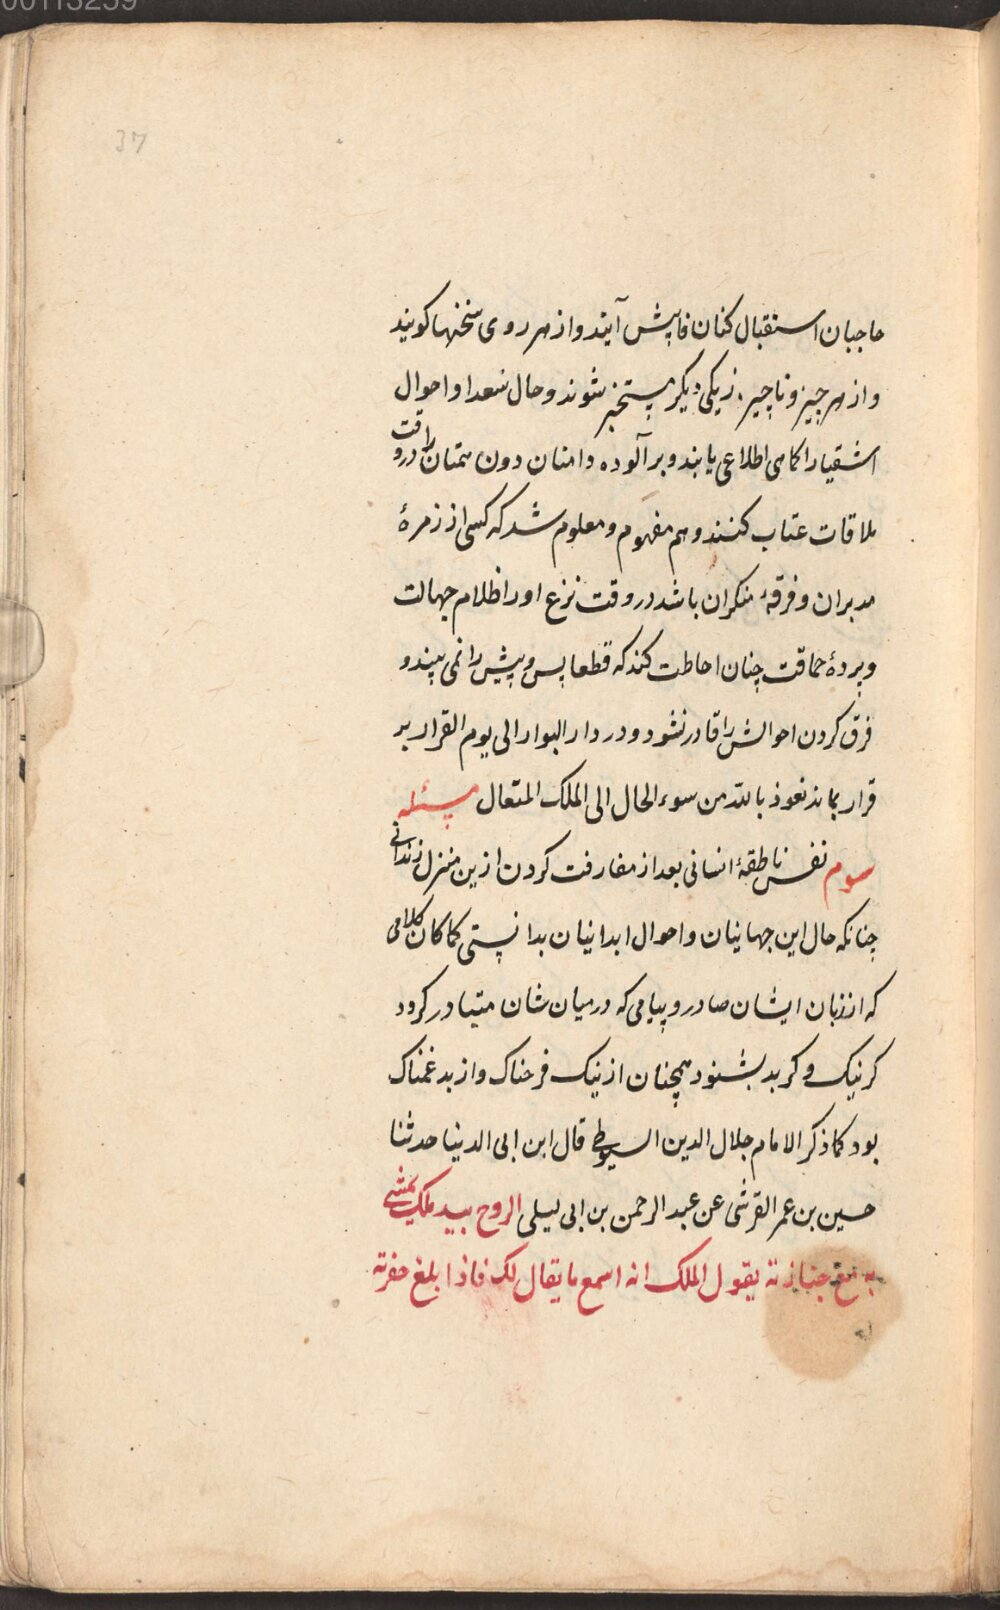 00113259
37
حاجبان استقبال کنان فاپیش آیند و از هر روی سخنها کویند
و از هر چیز و ناچیز زیکی دیکر مستخبر شوند و حال سعدا و احوال
اشقیا را کاهی اطلاعی یابند و بر آلوده دامنان دون همتان در وقت
ملاقات عتاب کنند و هم مفهوم و معلوم شد که کسی از زمرهٔ
مدبران و فرقهٔ منکران باشد در وقت نزع او را ظلام جهالت
و پردهٔ حماقت چنان احاطت کند که قطعا پس و پیش را نمی بیند و
فرق کردن احوالش را قادر نشود و در دار البوار الی یوم القرار بر
قرار بماند نعوذ بالله من سوء الحال الی الملک المتعال مسئله
سوم نفس ناطقهٔ انسانی بعد از مفارقت کردن ازین منزل زندانی
چنانکه حال این جهانیان و احوال ابدانیان بدانستی کماکان کلامی
که از زبان ایشان صادر و پیامی که در میان شان متبادر کردد
کر نیک و کر بد بشنود همچنان از نیک فرحناک و از بد غمناک
بود کما ذکر الامام جلال الدین السیوطی قال ابن ابی الدنیا حدثنا
حسین بن عمر القرشی عن عبد الرحمن بن ابی لیلی الروح بید ملک یمشی
به مع جنازته یقول الملک انه اسمع ما یقال لک فاذا بلغ حفرته